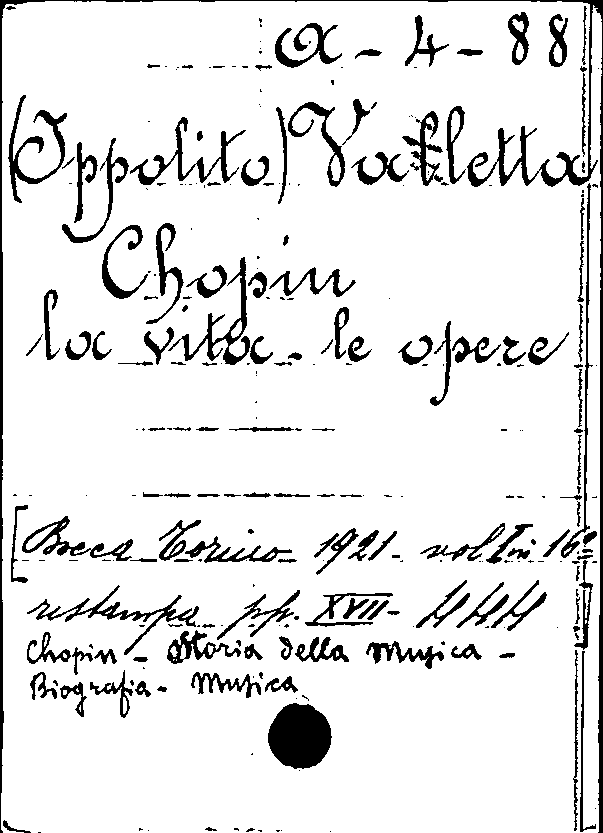 a - 4 - 88
(Ippolito) Valletta
Chopin
la vita - le opere
[Bocca Torino 1921 - vol I in 16º
ristampa pp. XVII - 444
Chopin - Storia della Musica -
Biografia - Musica